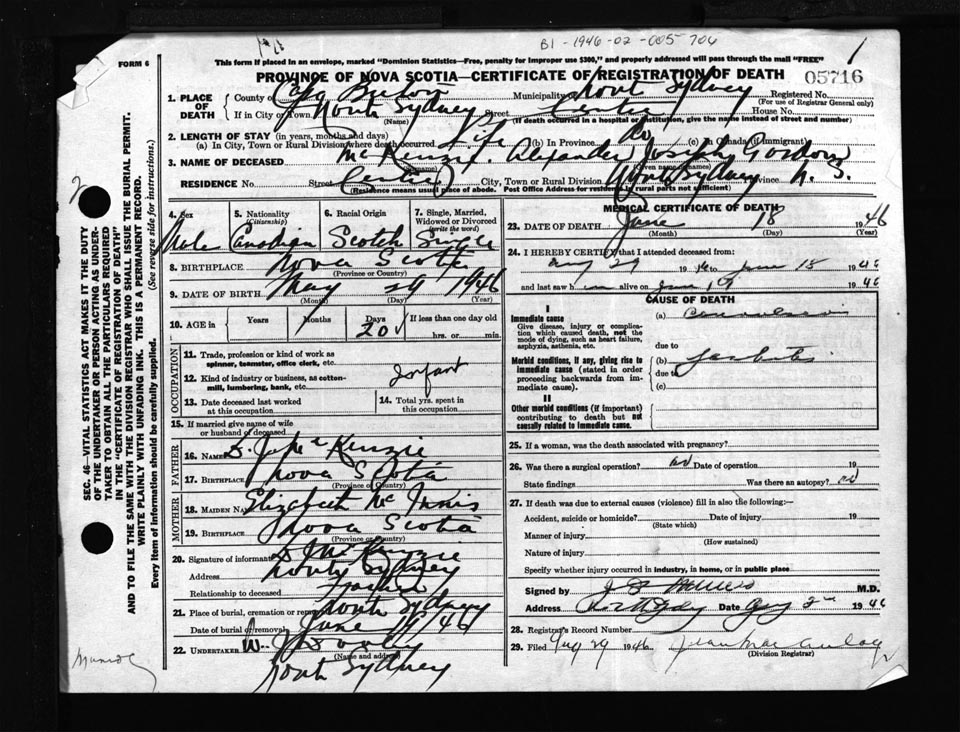 B1-1946-02-005706
1
FORM 6
This form if placed in an envelope, marked "Dominion Statistics—Free, penalty for improper use $300," and properly addressed will pass through the mail "FREE"
PROVINCE OF NOVA SCOTIA—CERTIFICATE OF REGISTRATION OF DEATH
05716
1. PLACE OF DEATH
County of Cape Breton Municipality North Sydney Registered No.
(For use of Registrar General only)
If in City or Town North Sydney Street Centre House No.
(Name) (If death occurred in a hospital or institution, give the name instead of street and number)
2. LENGTH OF STAY (in years, months and days)
(a) In City, Town or Rural Division where death occurred Life (b) In Province Do (c) In Canada (if immigrant)
3. NAME OF DECEASED McKenzie. Alexander Joseph Gordon
RESIDENCE No. Street Centre City, Town or Rural Division North Sydney Province N. S.
(Residence means usual place of abode. Post Office Address for residents in rural parts not sufficient)
4. Sex
Male
5. Nationality (Citizenship)
Canadian
6. Racial Origin
Scotch
7. Single, Married, Widowed or Divorced (write the word)
Single
8. BIRTHPLACE Nova Scotia
(Province or Country)
9. DATE OF BIRTH May 29 1946
(Month) (Day) (Year)
10. AGE in Years Months Days 20 If less than one day old
hrs. or min.
OCCUPATION
11. Trade, profession or kind of work as spinner, teamster, office clerk, etc.
12. Kind of industry or business, as cotton-mill, lumbering, bank, etc.
Infant
13. Date deceased last worked at this occupation
14. Total yrs. spent in this occupation
15. If married give name of wife or husband of deceased
FATHER
16. NAME McKenzie
17. BIRTHPLACE Nova Scotia
(Province or Country)
MOTHER
18. MAIDEN NAME Elizabeth McInnis
19. BIRTHPLACE Nova Scotia
(Province or Country)
20. Signature of informant McKenzie
Address North Sydney
Relationship to deceased Father
21. Place of burial, cremation or removal North Sydney
Date of burial or removal June 19/46
22. UNDERTAKER
(Name and address)
North Sydney
MEDICAL CERTIFICATE OF DEATH
23. DATE OF DEATH June 18 1946
(Month) (Day) (Year)
24. I HEREBY CERTIFY, that I attended deceased from
29 1946 to June 18 1946
and last saw him alive on June 1946
CAUSE OF DEATH
I
Immediate cause
Give disease, injury or complication which caused death, not the mode of dying, such as heart failure, asphyxia, asthenia, etc.
(a) Convulsions
due to
Morbid conditions, if any, giving rise to immediate cause (stated in order proceeding backwards from immediate cause).
(b)
due to
(c)
II
Other morbid conditions (if important) contributing to death but not causally related to immediate cause.
25. If a woman, was the death associated with pregnancy?
26. Was there a surgical operation? no Date of operation 19
State findings Was there an autopsy? no
27. If death was due to external causes (violence) fill in also the following:—
Accident, suicide or homicide? Date of injury 19
(State which)
Manner of injury
(How sustained)
Nature of injury
Specify whether injury occurred in industry, in home, or in public place
Signed by M.D.
Address Date 2nd 1946
28. Registrar's Record Number
29. Filed Aug 29 1946 Jean MacAulay
(Division Registrar)
SEC. 46—VITAL STATISTICS ACT MAKES IT THE DUTY OF THE UNDERTAKER OR PERSON ACTING AS UNDERTAKER TO OBTAIN ALL THE PARTICULARS REQUIRED IN THE "CERTIFICATE OF REGISTRATION OF DEATH" AND TO FILE THE SAME WITH THE DIVISION REGISTRAR WHO SHALL ISSUE THE BURIAL PERMIT.
WRITE PLAINLY WITH UNFADING INK. THIS IS A PERMANENT RECORD.
Every item of information should be carefully supplied. (See reverse side for instructions.)
2